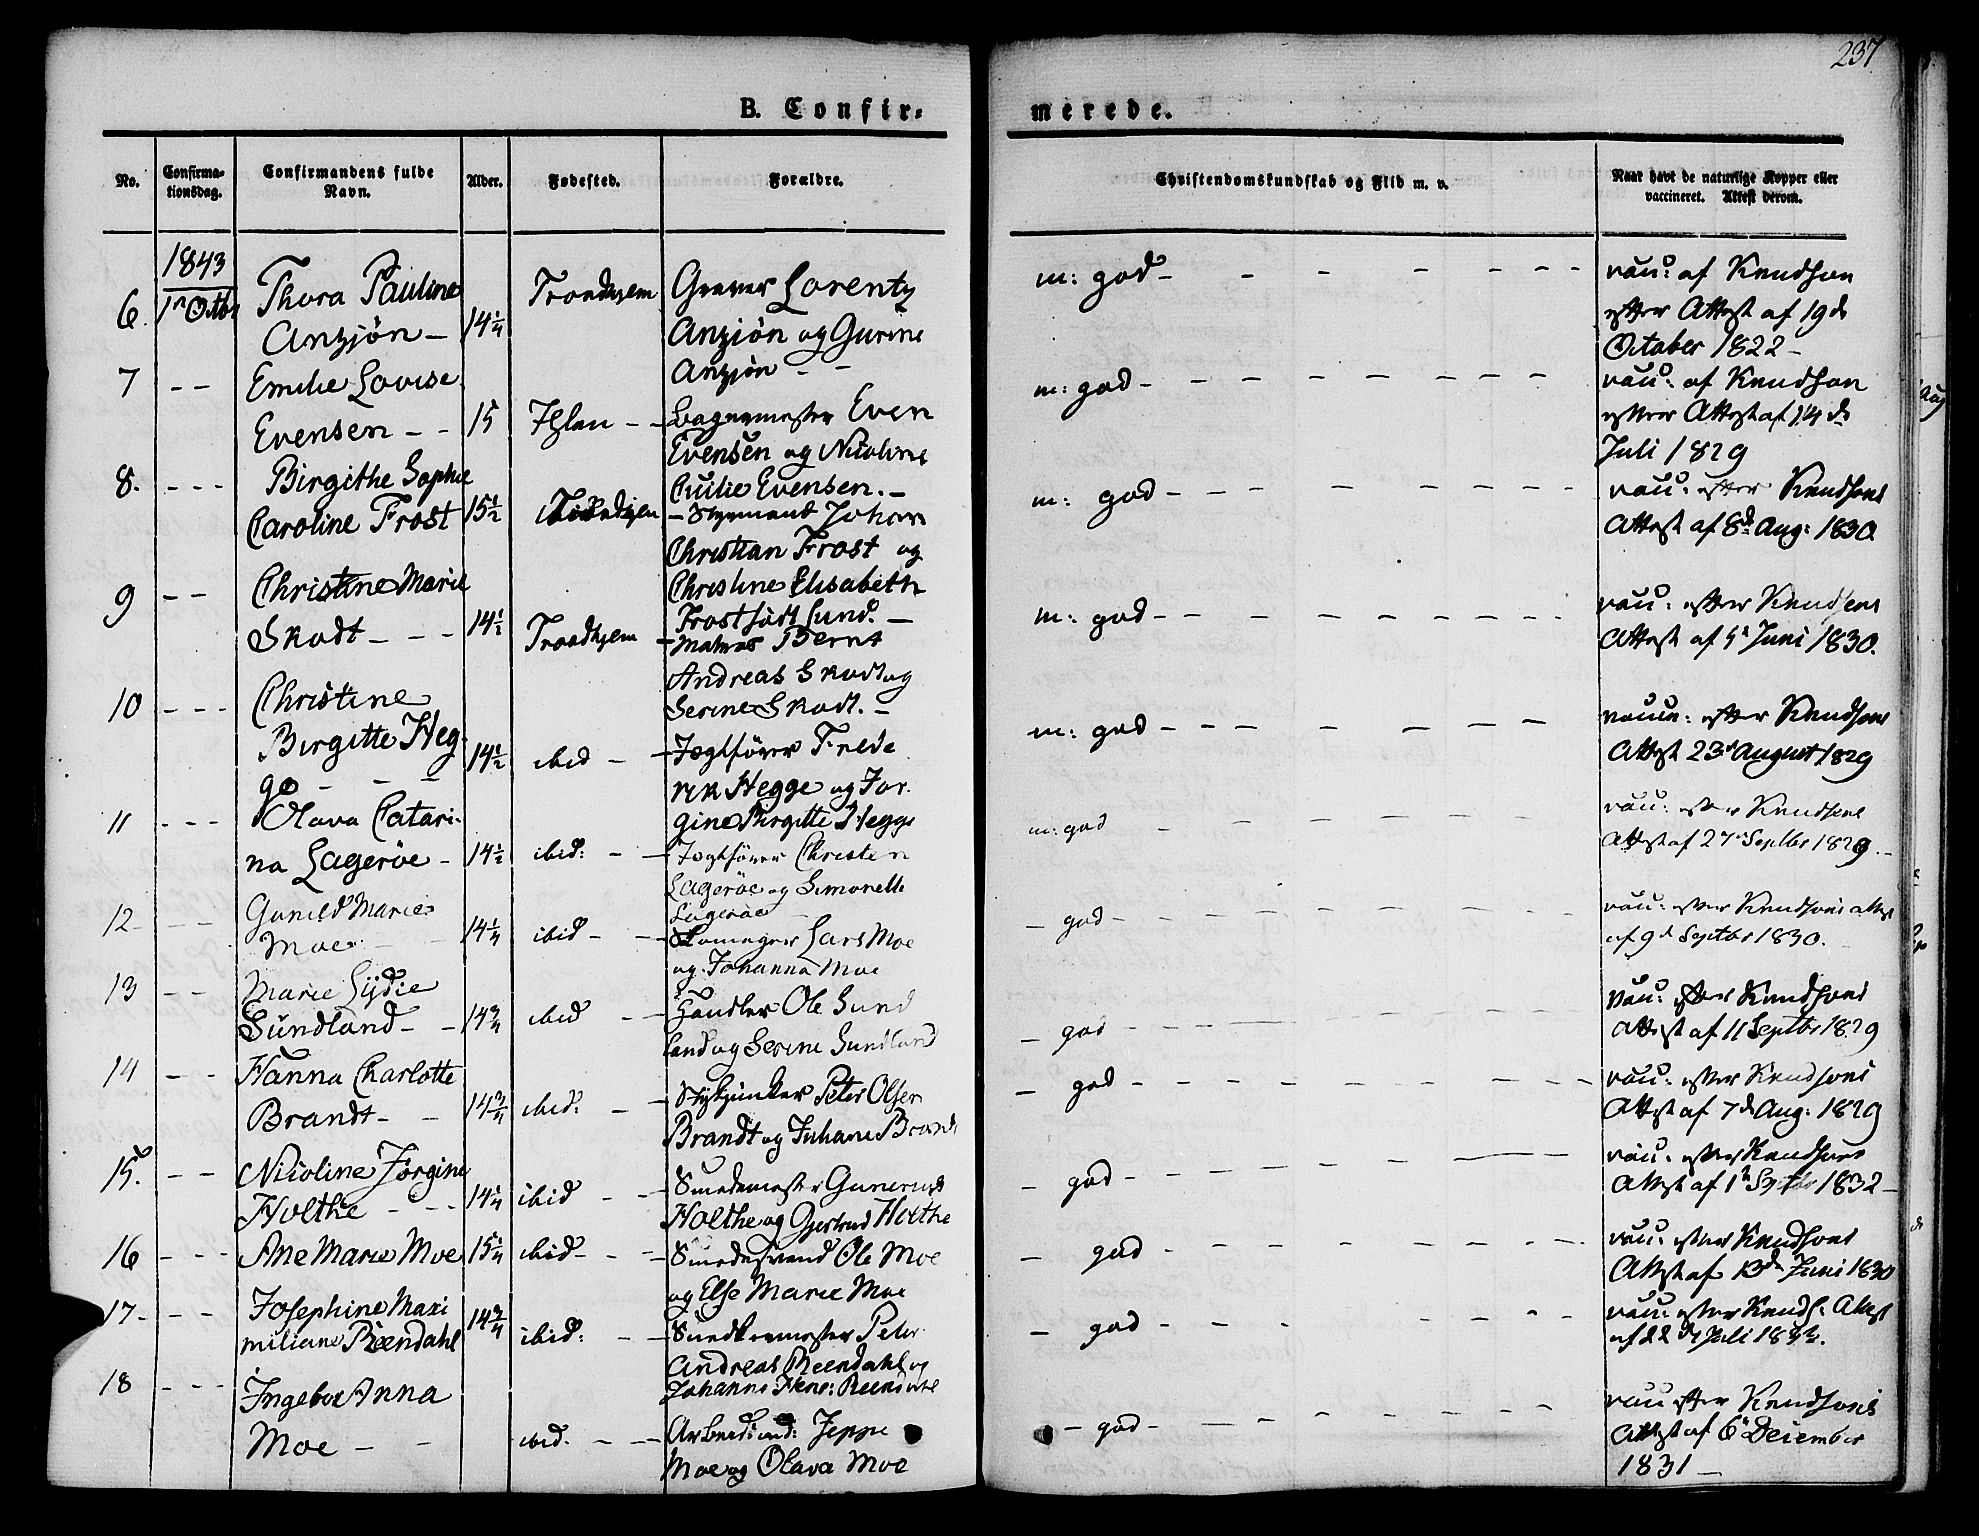 237
B. Confir=
merede.
No.
Confirma-
tionsdag.
Confirmandens fulde
Navn.
Alder.
Fødested.
Forældre.
Christendomskundskab og Flid m. v.
Naar havt de naturlige Kopper eller
vaccineret. Attest derom.
1843
6. 1n Octbr Thora Pauline
Anzjön – 14 1/4 Trondhjem Graver Lorentz
Anzjön og Gurine
Anzjön – –
m: god – – – – – – –
vacc: af Knudson
efter Attest af 19de
October 1822 –
7 – – Emilie Lovise
Evensen – – 15 Ihlen – – Bagermester Even
Evensen og Nicoline
Cecilie Evensen. –
m: god – – – – – – – – –
vacc: af Knudson
efter Attest af 14de
Juli 1829
8. – – – Birgithe Sophie
Caroline Frost 15 1/2 – Styrmand Johan
Christian Frost og
Christine Elisabeth
Frost født Lund. –
m: god – – – – – – – – –
vacc: efter Knudsons
Attest af 8d Aug: 1830.
9 – – Christine Marie
Skodt – – – 14 1/2 Trondhjem – Matros Bernt
Andreas Skodt og
Serine Skodt. –
m: god – – – – – – – – –
vacc: efter Knudsens
Attest af 5t Juni 1830.
10 – – – Christine
Birgitte Heg-
ge – – – 14 1/2 ibid – – – Jægtfører Frede
rik Hegge og Jør-
gine Birgitte Hegge
m: god – – – – – – –
vaccn: efter Knudsons
Attest 23d August 1829
11 – – – Olava Catari-
na Lagerøe – 14 1/2 ibid: – – Jægtfører Christen
Lagerøe og Simonelle
Lagerøe
m: god – – – – – – –
vacc: efter Knudsens
Attest af 27n Septbr 1829. –
12 – – – Gunild Marie
Moe – – 14 1/4 ibid – – – Skomager Lars Moe
og Johanna Moe
– god – – – – – – –
vacc: efter Knudsons attest
af 9d Septbr 1830.
13 – – Marie Lydie
Sundland – – 14 3/4 ibid – – Handler Ole Sund
land og Serine Sundland
– god – – – – – – –
Vacc: efter Knudsons
Attest af 11 Septbr 1829
14 – – Hanna Charlotte
Brandt – – 14 3/4 ibid: – – Stykjunker Peter Olsen
Brandt og Johane Brandt
– god – – – – – – –
vacc: efter Knudsons
Attest af 7de Aug: 1829
15. – – Nicoline Jørgine
Holthe – – – 14 1/4 ibid – – Smedemester
Holthe og Gjertrud Holthe
– god – – – – – – –
vacc: efter Knudsons
Attest af 1n Septbr 1832 –
16 – – – Ane Marie Moe 15 1/4 ibid – – – Smedesvend Ole Moe
og Else Marie Moe
– god – – – – – – –
vacc: efter Knudsons
Attest af 13de Juni 1830
17 – – – Josephine Maxi
miliane Reendahl 14 3/4 ibid: – – Snedkermester Peter
Andreas Reendahl og
Johanne Hene: Reendahl
– god – – – – – –
vacc: efter Knuds: Attest
af 22 de Juli 1832.
18 – – – Ingebor Anna
Moe – – ibid. – – Arbeidsmd: Jeppe
Moe og Olava Moe
– god – – – – – – –
vacc efter Knudsons
Attest af 6t December
1831 –